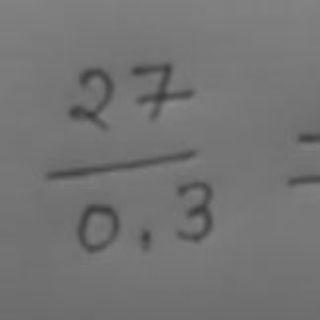 27
0.3 =